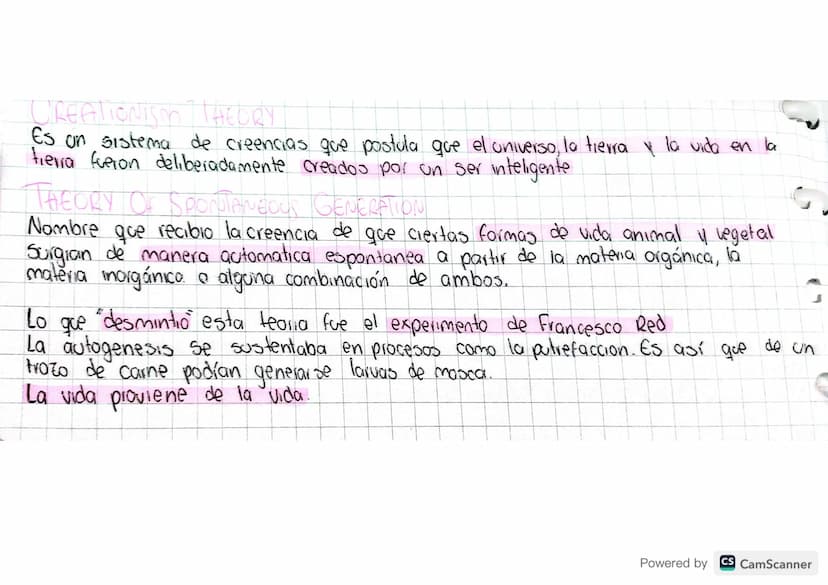 CREATIONISM THEORY
Es un sistema de creencias que postula que el universo, la tierra y la vida en la
tierra fueron deliberadamente creados por un ser inteligente
THEORY OF SPONTANEOUS GENERATION
Nombre que recibio la creencia de que ciertas formas de vida animal y vegetal
surgian de manera automatica espontanea a partir de la materia orgánica, la
materia inorgánica o alguna combinación de ambos.
Lo que "desmintió" esta teoria fue el experimento de Francesco Red
La autogenesis se sustentaba en procesos como la putrefaccion. Es así que de un
trozo de carne podían generarse larvas de mosca.
La vida proviene de la vida.
Powered by CS CamScanner